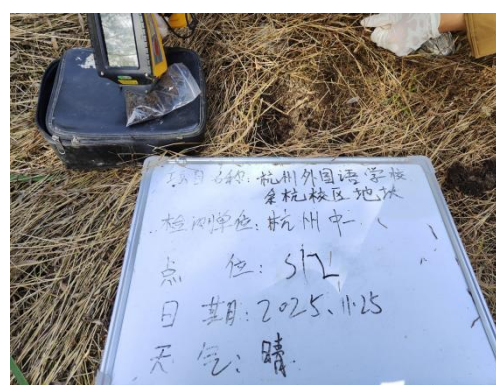 项目名称：杭州外国语学校
余杭校区地块
检测单位：杭州中一
点 位：S12
日 期：2025.11.25
天 气：晴